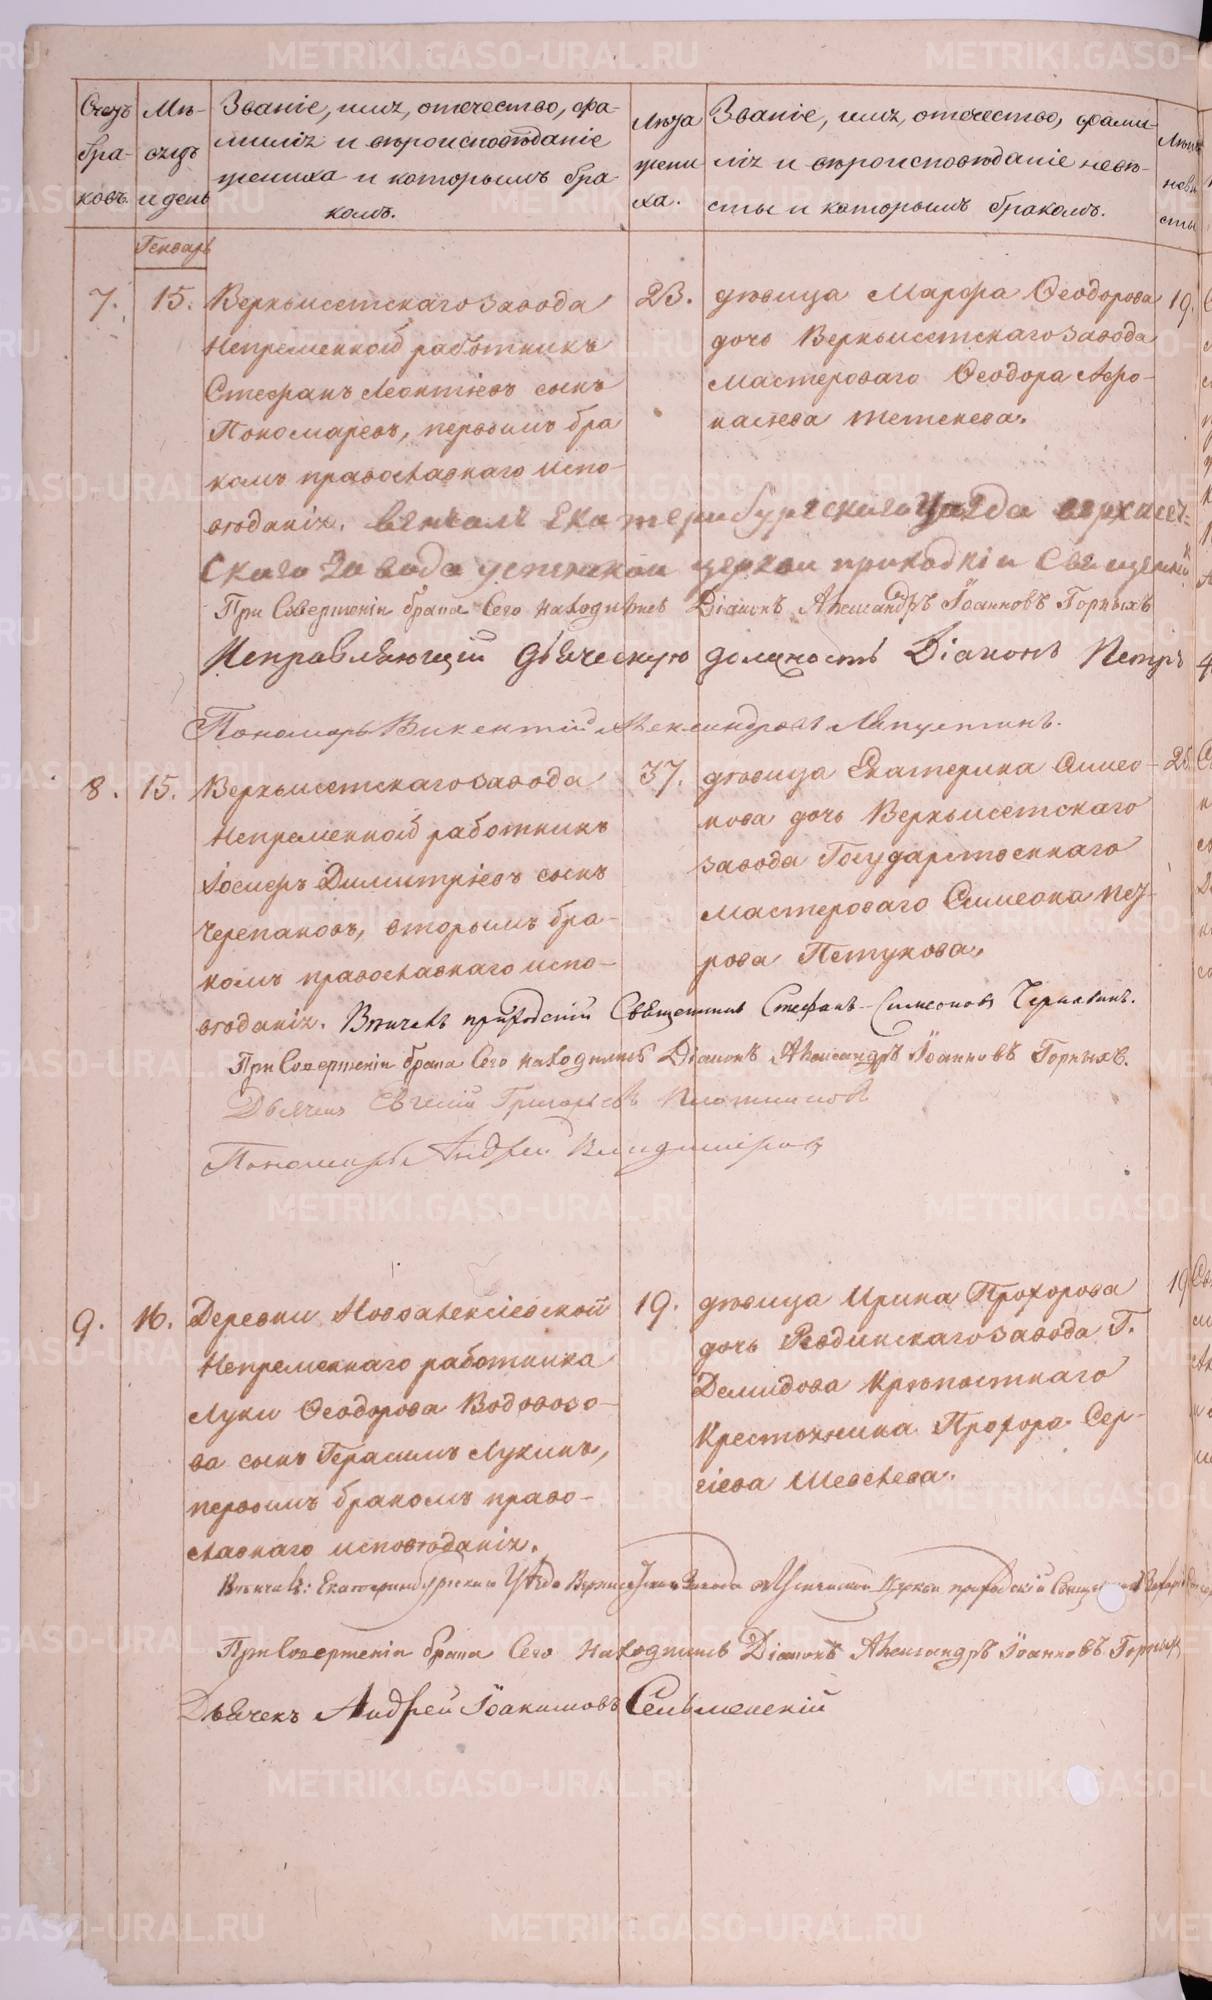 Счетъ браковъ.
Мѣсяцъ и день
Званіе, имя, отечество, фамилія и вѣроисповѣданіе жениха и которымъ бракомъ.
Лѣта жениха.
Званіе, имя, отечество, фамилія и вѣроисповѣданіе невѣсты и которымъ бракомъ.
Лѣта невѣсты
Генварь
7.
15.
Верхъисетскаго завода
Непременной работникъ
Стефанъ Леонтіевъ сынъ
Пономаревъ, первымъ бра-
комъ православнаго испо-
вѣданія.
23.
дѣвица Марфа Ѳеодорова
дочь Верхъисетскаго завода
мастероваго Ѳеодора Аѳо-
насьева Тетенева.
19.
Венчалъ Екатеринбургскаго Уѣзда Верхисет-
скаго Завода успенской церкви приходкіи Священникъ
При Совершеніи брака Сего находились Діаконъ Александръ Іоанновъ Горныхъ
Исправляющій дьяческую должность Діаконъ Петръ
Пономарь Викентій Александровъ Лапустинъ.
8.
15.
Верхъисетскаго завода
Непременной работникъ
Іосифъ Димитріевъ сынъ
Черепановъ, вторымъ бра-
комъ православнаго испо-
вѣданія.
37.
дѣвица Екатерина Симео-
нова дочь Верхъисетскаго
завода Государственнаго
мастероваго Симеона
Петухова.
Вѣнчалъ приходскій Священникъ Стефанъ Симеоновъ Чернавинъ.
При Совершеніи брака Сего находились Діаконъ Александръ Іоанновъ Горныхъ.
Дьячекъ Евгеній Григорьевъ Плотниковъ
Пономарь Андрей Владиміровъ
9.
16.
Деревни Новоалексіевской
Непременнаго работника
Луки Ѳеодорова Водовозо-
ва сынъ Герасимъ Лукинъ,
первымъ бракомъ право-
славнаго исповѣданія.
19.
дѣвица Ирина Прохорова
дочь Ревдинскаго завода Г.
Демидова Крѣпостнаго
Крестьянина Прохора Сер-
гіева Шевелева.
19
Вѣнчалъ: Екатеринбургскаго Уѣзда Верхисетскаго Завода Успенской Церкви приходскій Священникъ Захарій
При Совершеніи брака Сего находились Діаконъ Александръ Іоанновъ Горныхъ
Дьячекъ Андрей Іоакимовъ Сельменскій
METRIKI.GASO-URAL.RU